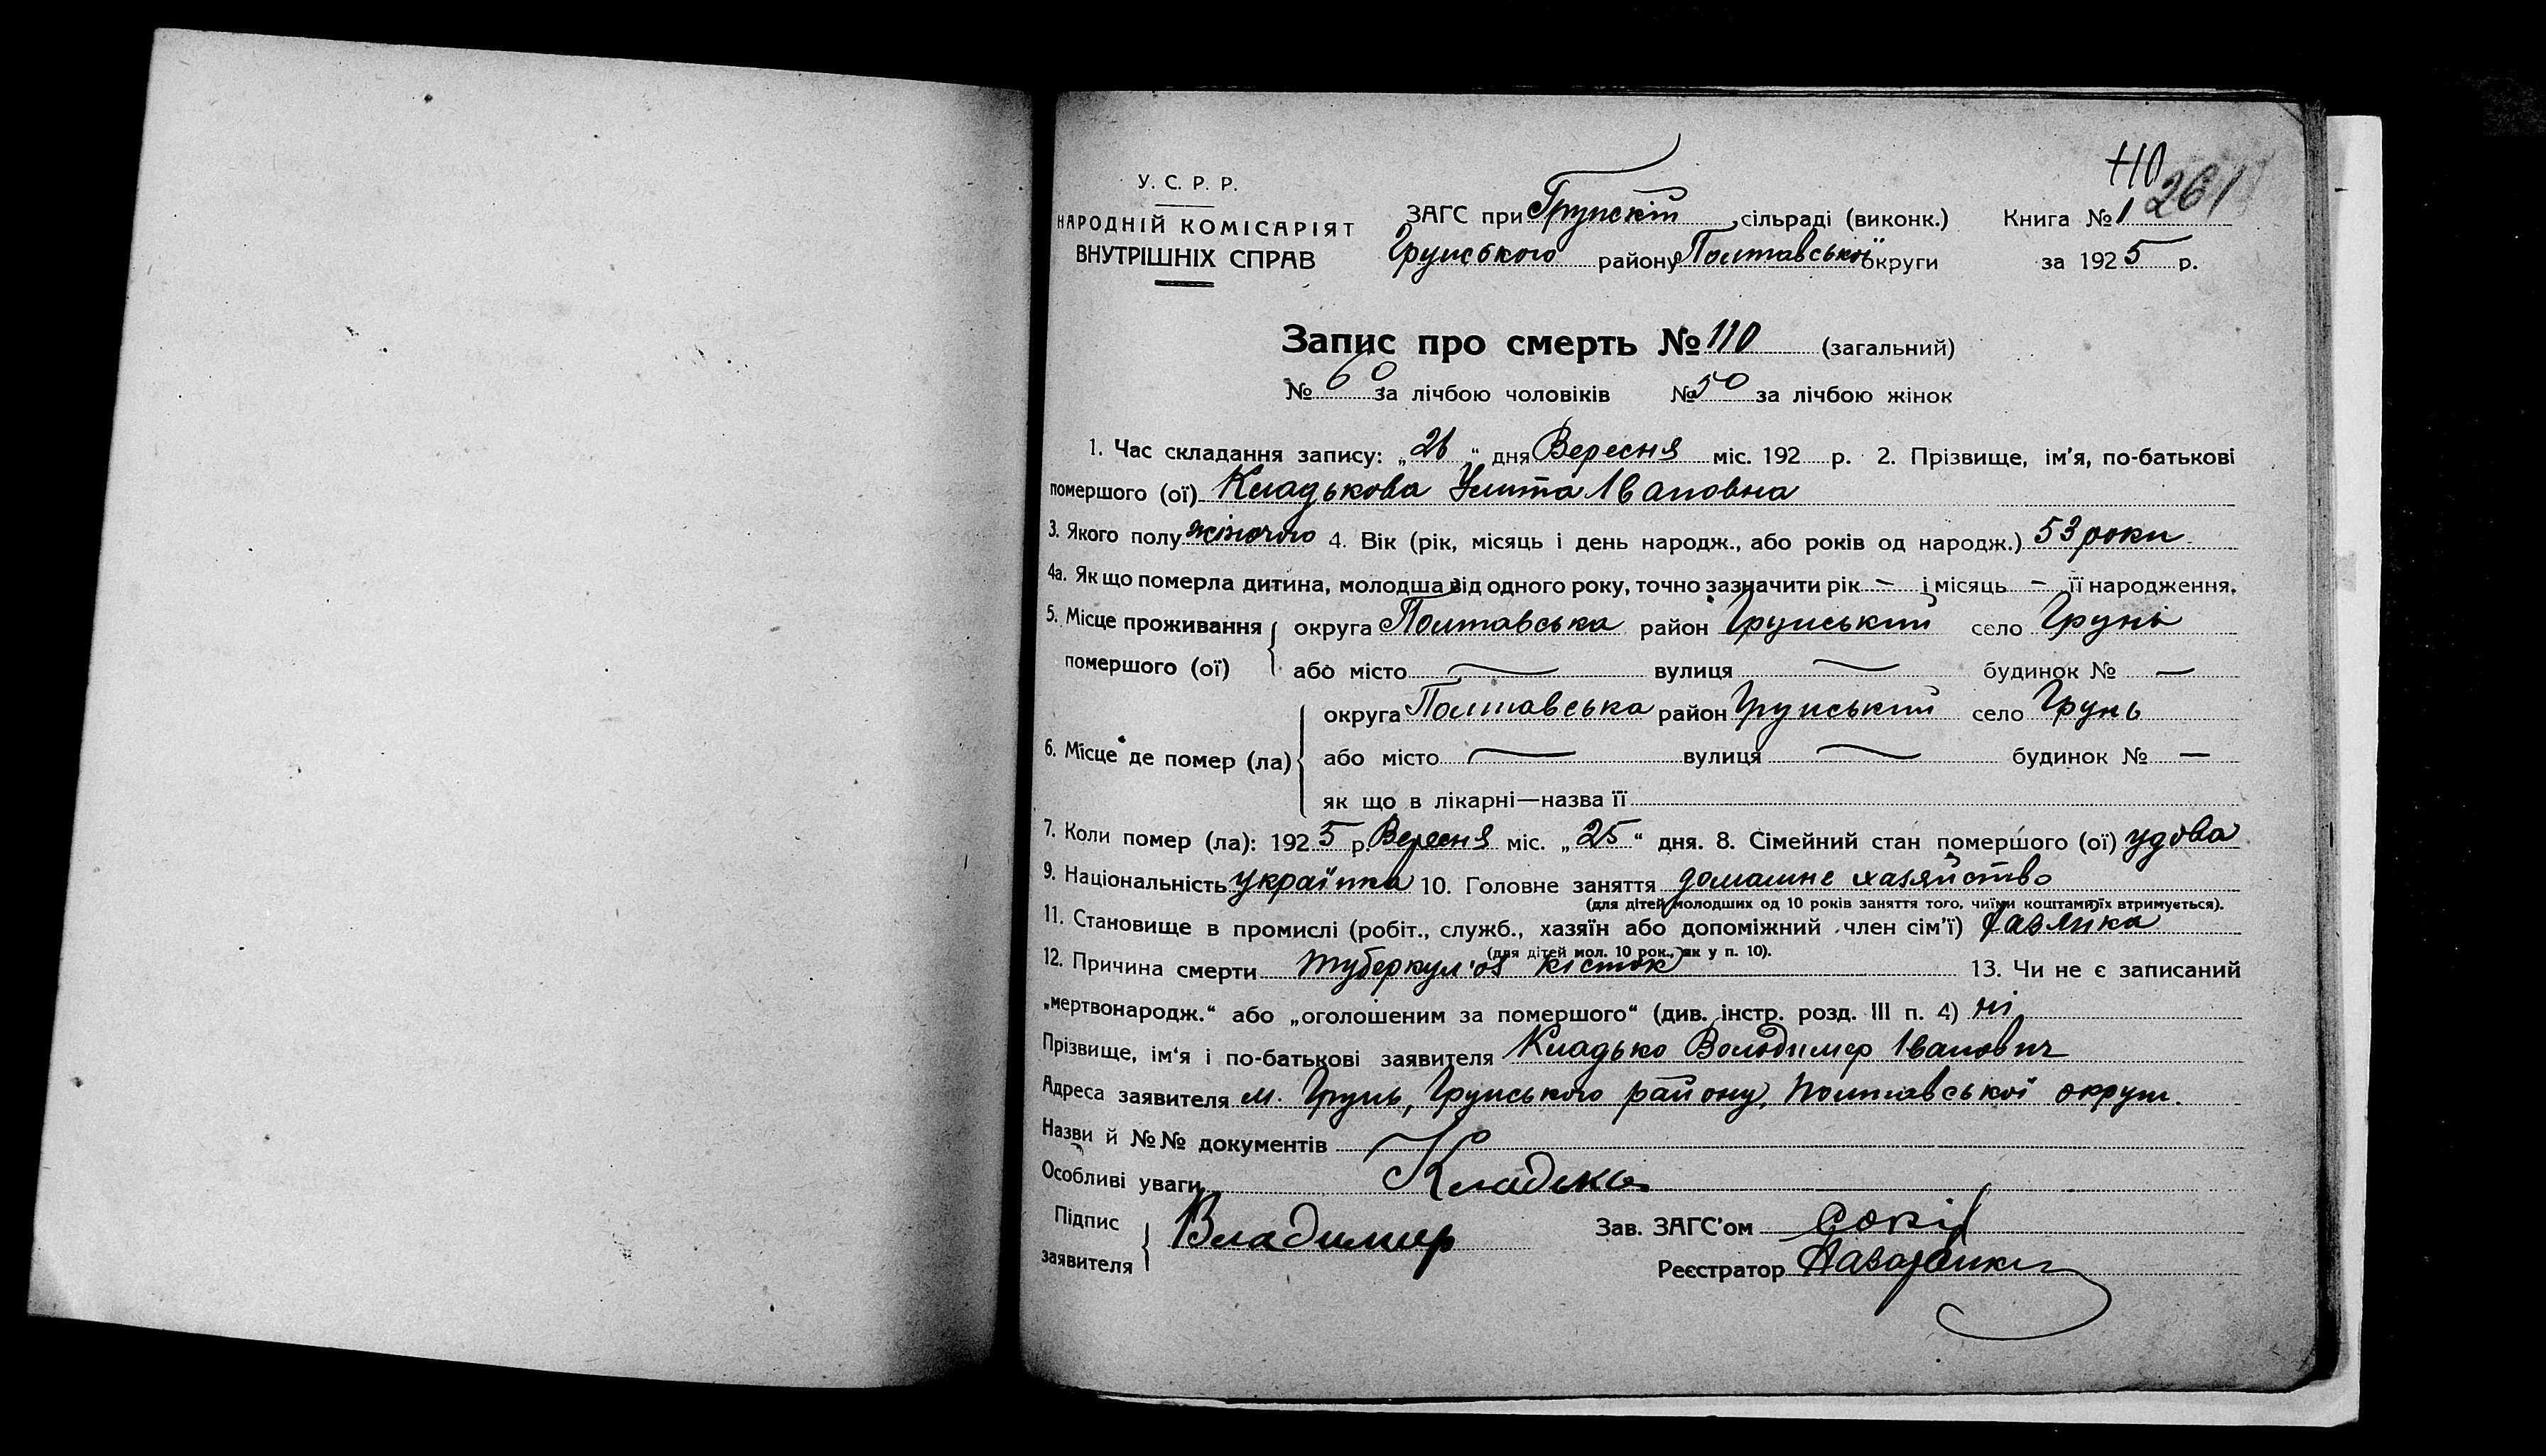 110
261
У. С. Р. Р.
НАРОДНІЙ КОМІСАРІЯТ
ВНУТРІШНІХ СПРАВ
ЗАГС при Грунскій сільраді (виконк.) Книга № 1
Грунського району Полтавської округи за 1925 р.
Запис про смерть № 110 (загальний)
№ 60 за лічбою чоловіків № 50 за лічбою жінок
1. Час складання запису: „26“ дня Вересня міс. 192 р. 2. Прізвище, ім'я, по-батькові
помершого (ої) Кладькова Улита Івановна
3. Якого полу жіночого 4. Вік (рік, місяць і день народж., або років од народж.) 53 роки
4а. Як що померла дитина, молодша від одного року, точно зазначити рік — і місяць — її народження.
5. Місце проживання помершого (ої) округа Полтавська район Грунський село Грунь
або місто — вулиця — будинок № —
6. Місце де помер (ла) округа Полтавська район Грунський село Грунь
або місто — вулиця — будинок № —
як що в лікарні—назва її
7. Коли помер (ла): 1925 р. Вересня міс. „25“ дня. 8. Сімейний стан помершого (ої) удова
9. Національність українка 10. Головне заняття домашнє хазяйство
(для дітей молодших од 10 років заняття того, чиїми коштами їх втримується).
11. Становище в промислі (робіт., служб., хазяїн або допоміжний член сім'ї) хазяйка
(для дітей мол. 10 рок., як у п. 10).
12. Причина смерти туберкул'оз кісток 13. Чи не є записаний
„мертвонародж.“ або „оголошеним за помершого“ (див. інстр. розд. III п. 4) ні
Прізвище, ім'я і по-батькові заявителя Кладько Володимер Іванович
Адреса заявителя м. Грунь, Грунського району, Полтавської округи.
Назви й №№ документів
Особливі уваги
Кладько
Підпис заявителя Владимир Зав. ЗАГС'ом
Реєстратор